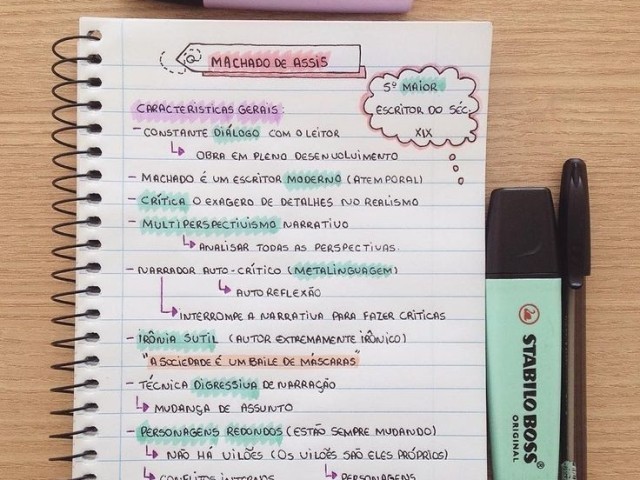 MACHADO DE ASSIS
5º MAIOR
ESCRITOR DO SÉC.
XIX
CARACTERÍSTICAS GERAIS
- CONSTANTE DIÁLOGO COM O LEITOR
OBRA EM PLENO DESENVOLVIMENTO
- MACHADO É UM ESCRITOR MODERNO (ATEMPORAL)
- CRÍTICA O EXAGERO DE DETALHES NO REALISMO
- MULTIPERSPECTIVISMO NARRATIVO
ANALISAR TODAS AS PERSPECTIVAS.
- NARRADOR AUTO-CRÍTICO (METALINGUAGEM)
AUTO REFLEXÃO
INTERROMPE A NARRATIVA PARA FAZER CRÍTICAS
- IRÔNIA SUTIL (AUTOR EXTREMAMENTE IRÔNICO)
"A SOCIEDADE É UM BAILE DE MÁSCARAS"
- TÉCNICA DIGRESSIVA DE NARRAÇÃO
MUDANÇA DE ASSUNTO
- PERSONAGENS REDONDOS (ESTÃO SEMPRE MUDANDO)
NÃO HÁ VILÕES (OS VILÕES SÃO ELES PRÓPRIOS)
CONFLITOS INTERNOS PERSONAGENS
STABILO BOSS
ORIGINAL